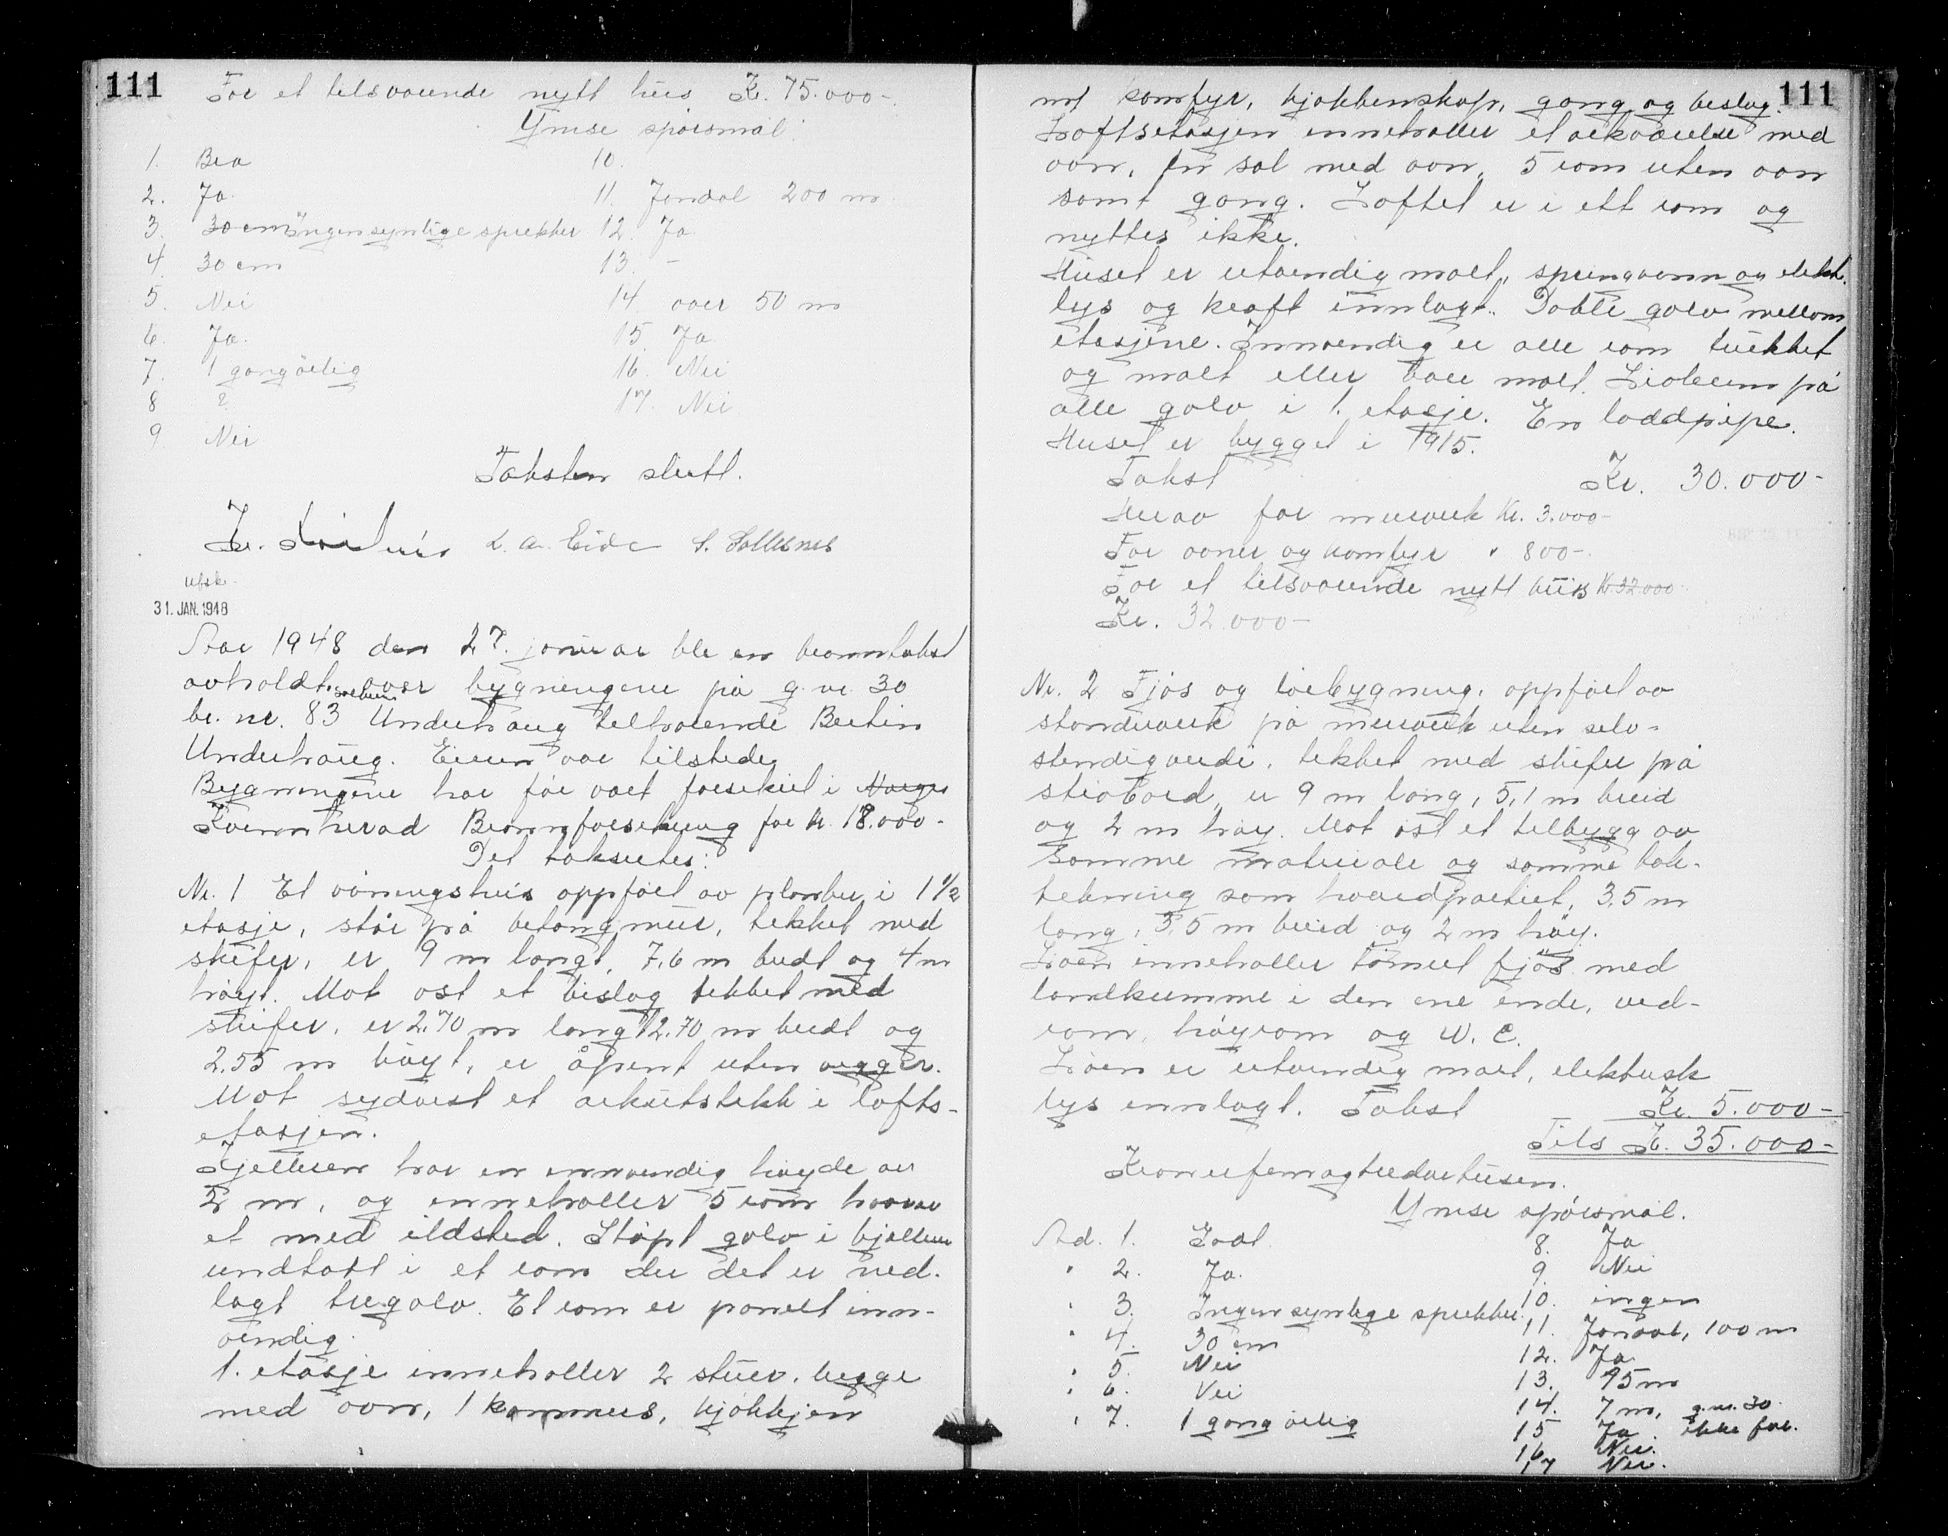 111
For et tilsvarende nytt hus Kr. 75.000-.
Ymse spørsmål:
1. Bra
2. Ja
3. 30 cm Ingen synlige sprekker
4. 30 cm
5. Nei
6. Ja.
7. 1 gang årlig
8 ?
9. Nei
10.
11. Jondal 200 m
12. Ja
13. -
14 over 50 m
15. Ja
16. Nei
17. Nei
Taksten slutt.
L. A. Eide S. Sollesnes
utsk.
31. JAN. 1948
Aar 1948 den 27. januar ble en branntakst
avholdt over bygningene på g.nr. 30
br. nr. 83 Underhaug tilhørende Bertin
Underhaug. Eieren var tilstede
Bygningene har før vært forsikret i Norges
Kvinnherad Brannforsikring for kr. 18.000-
Det takseres:
Nr. 1 Et våningshus oppført av planker i 1 1/2
etasje, står på betongmur, tekket med
skifer, er 9 m langt, 7,6 m bredt og 4 m
høyt. Mot øst et bislag tekket med
skifer, er 2,70 m langt 2.70 m bredt og
2.55 m høyt, er åpent uten vegger.
Mot sydvest et arkutstikk i lofts-
etasjen.
Kjelleren har en innvendig høyde av
2 m, og inneholler 5 rom hvorav
et med ildsted. Støpt golv i kjelleren
undtatt i et rom der det er ned-
lagt tregolv. Et rom er panelt inn-
vendig.
1. etasje inneholler 2 stuer, begge
med ovn, 1 kammers, kjøkkjen
111
m/ komfyr, kjøkkenskap, gang og beslag.
Loftsetasjen inneholler et arkværelse med
ovn, en sal med ovn, 5 rom uten ovn
samt gang. Loftet er i ett rom og
nyttes ikke.
Huset er utvendig malt, springvann og elekt.
lys og kraft innlagt. Doble golv mellom
etasjene. Innvendig er alle rom trekket
og malt eller bare malt. Linoleum på
alle golv i 1. etasje. En loddpipe.
Huset er bygget i 1915.
Takst Kr. 30.000-
Herav for murverk Kr. 3.000-
For ovner og komfyr " 800-.
For et tilsvarende nytt hus Kr. 32.000
Kr. 32.000-
Nr. 2 Fjøs og løebygning, oppført av
standverk på murverk uten selv-
stendig verdi, tekket med skifer på
strøbord, er 9 m lang, 5,1 m breid
og 2 m høy. Mot øst et tilbygg av
samme materiale og samme tak-
tekning som hovedpartiet, 3,5 m
lang, 3,5 m breid og 2 m høy.
Løen inneholler tømret fjøs med
landkumme i den ene ende, ved-
rom, høyrom og W. C.
Løen er utvendig malt, elektrisk
lys innlagt. Takst Kr. 5.000-
Tils Kr. 35.000-
Kronerfemogtredvetusen.
Ymse spørsmål.
Ad. 1. Godt
" 2. Ja.
" 3. Ingen synlige sprekker.
" 4. 30 cm
" 5. Nei
" 6. Nei
" 7. 1 gang årlig
8. Ja
9. Nei
10. ingen
11. Jondal, 100 m
12. Ja
13. 95 m
14. 7 m, g.nr. 30
15 Ja ikke fork.
16 Nei.
17 Nei.